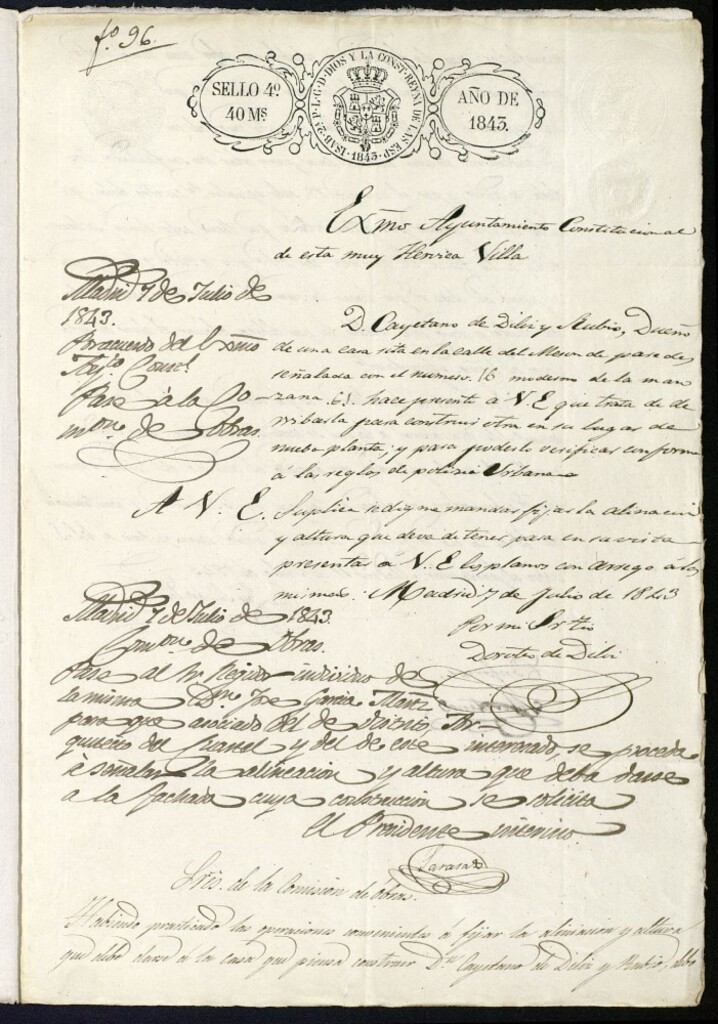 fº 96.
SELLO 4º
40 Ms
ISAB·2ª P·L·G·D·DIOS Y LA CONST·REYNA DE LAS ESP
1843
AÑO DE
1843.
Exmo Ayuntamiento Constitucional
de esta muy Heroica Villa
Madrid 7 de Julio de
1843.
Por acuerdo del Exmo
Aytº Constl
Pase à la Co
mon de Obras.
D. Cayetano de Dilvi y Rubio, Dueño
de una casa sita en la calle del Meson de paredes
señalada con el numero 16 moderno de la man
zana 61. hace presente a V.E que trata de de
rribarla para construir otra en su lugar de
nueva planta; y para poderlo verificar conforme
á las reglas de policia Urbana
A V. E. Suplica se digne mandar fijar la alineacion
y altura que deva de tener, para en su vista
presentar á V. E los planos con arreglo á los
mismos. Madrid 7 de Julio de 1843
Por mi Sr tio
Doroteo de Dilvi
Madrid 7 de Julio de 1843.
Comon de Obras.
Pase al Sr Regidor individuo de
la misma Dn Jose Garcia Martz
para que asociado del de Distrito, Ar
quitecto del Cuartel y del de este interesado, se proceda
à señalar la alineacion y altura que deba darse
a la fachada cuya construccion se solicita
El Presidente interino
Sres. de la Comision de obras.
Habiendo practicado las operaciones convenientes á fijar la alineacion y altura
que debe darse á la casa que piensa construir Dn Cayetano de Dilvi y Rubio, debo